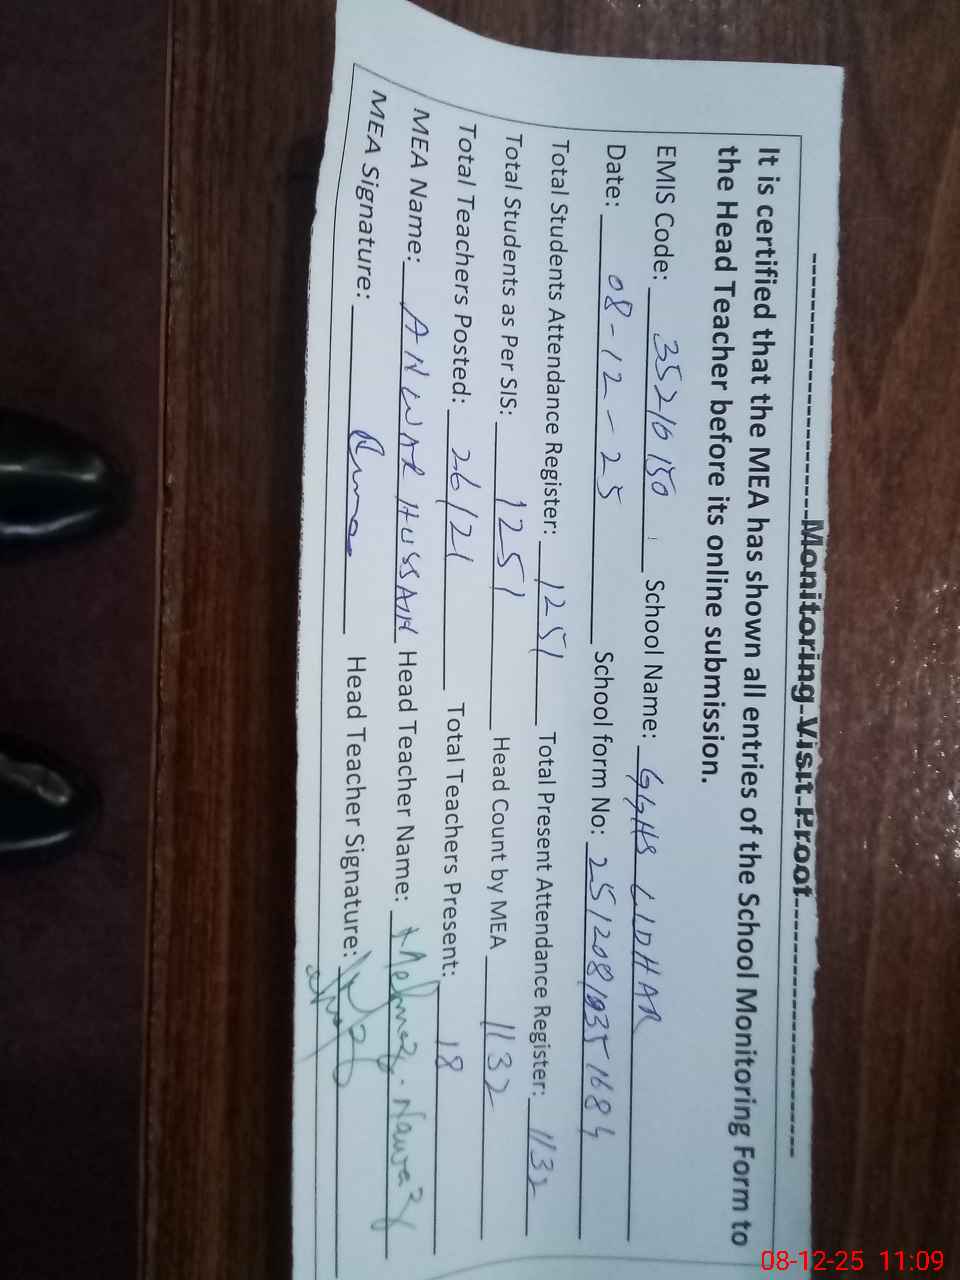 Monitoring Visit Proof
It is certified that the MEA has shown all entries of the School Monitoring Form to
the Head Teacher before its online submission.
EMIS Code: 35210150 School Name: GGHS LIDHAR
Date: 08-12-25 School form No:
Total Students Attendance Register: 1251 Total Present Attendance Register: 1132
Total Students as Per SIS: 1251 Head Count by MEA 1132
Total Teachers Posted: 26/21 Total Teachers Present: 18
MEA Name: ANWAR HUSSAIN Head Teacher Name: Mehnaz Nawaz
MEA Signature: Head Teacher Signature:
08-12-25 11:09